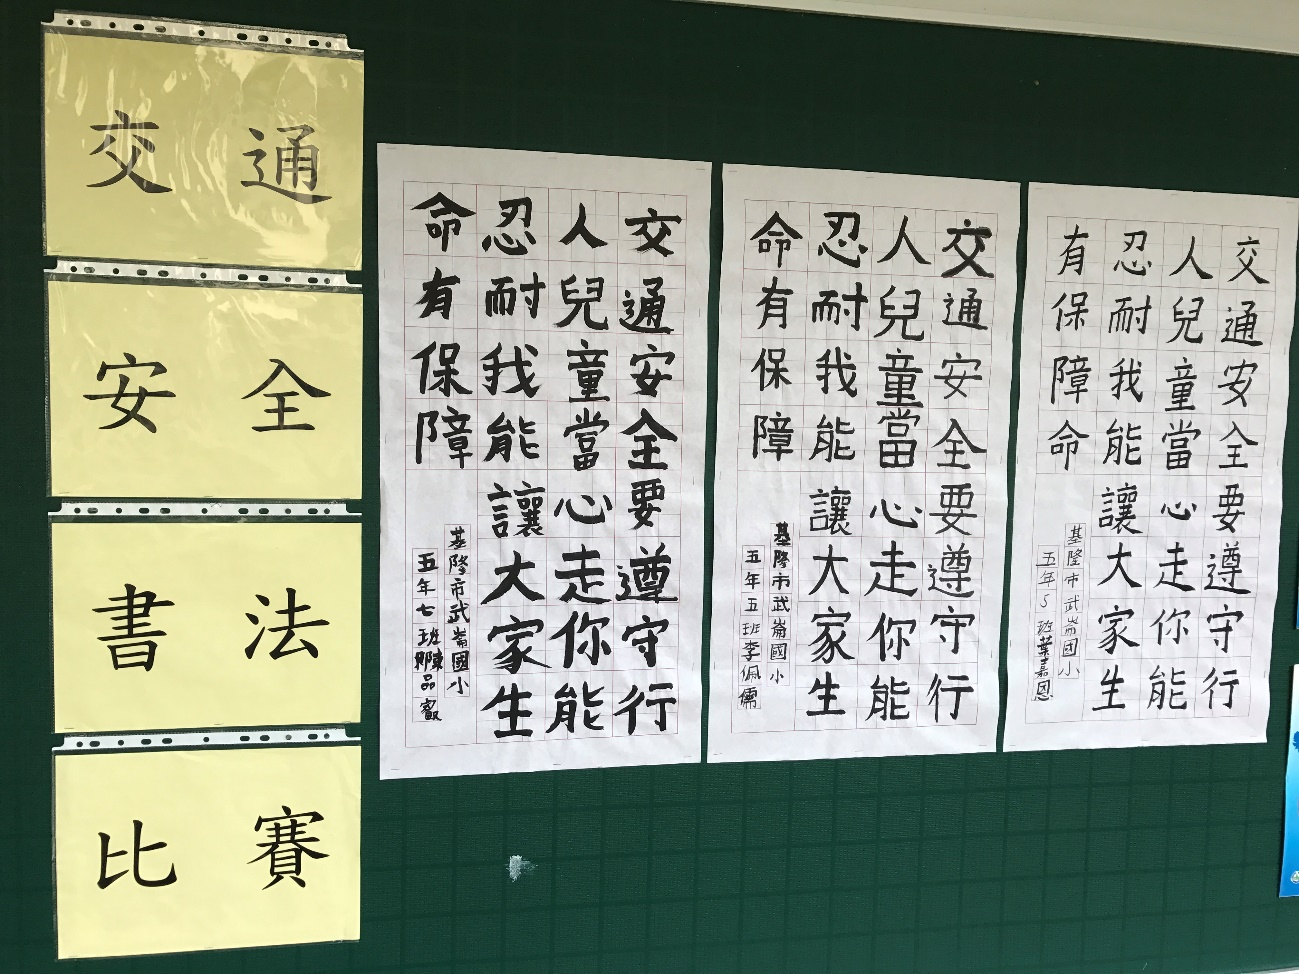 交通
安全
書法
比賽
交通安全要遵守行
人兒童當心走你能
忍耐我能讓大家生
命有保障
基隆市武崙國小
五年七班陳品叡
交通安全要遵守行
人兒童當心走你能
忍耐我能讓大家生
命有保障
基隆市武崙國小
五年五班李佩儒
交通安全要遵守行
人兒童當心走你能
忍耐我能讓大家生
有保障命
基隆市武崙國小
五年5班葉嘉恩